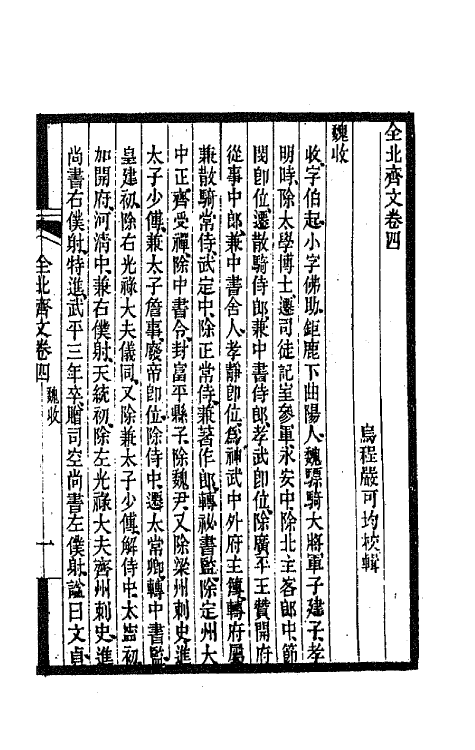 全北齊文卷四
烏程嚴可均校輯
魏收
收字伯起小字佛助鉅鹿下曲陽人魏驃騎大將軍子建子孝
明時除太學博士遷司徒記室參軍永安中除北主客郎中節
閔卽位遷散騎侍郎兼中書侍郎孝武卽位除廣平王贊開府
從事中郎兼中書舍人孝靜卽位爲神武中外府主簿轉府屬
兼散騎常侍武定中除正常侍兼著作郎轉祕書監除定州大
中正齊受禪除中書令封富平縣子除魏尹又除梁州刺史進
太子少傅兼太子詹事廢帝卽位除侍中遷太常卿轉中書監
皇建初除右光祿大夫儀同又除兼太子少傅解侍中太寧初
加開府河清中兼右僕射天統初除左光祿大夫齊州刺史進
尚書右僕射特進武平三年卒贈司空尚書左僕射謚曰文貞
全北齊文卷四
魏收
一